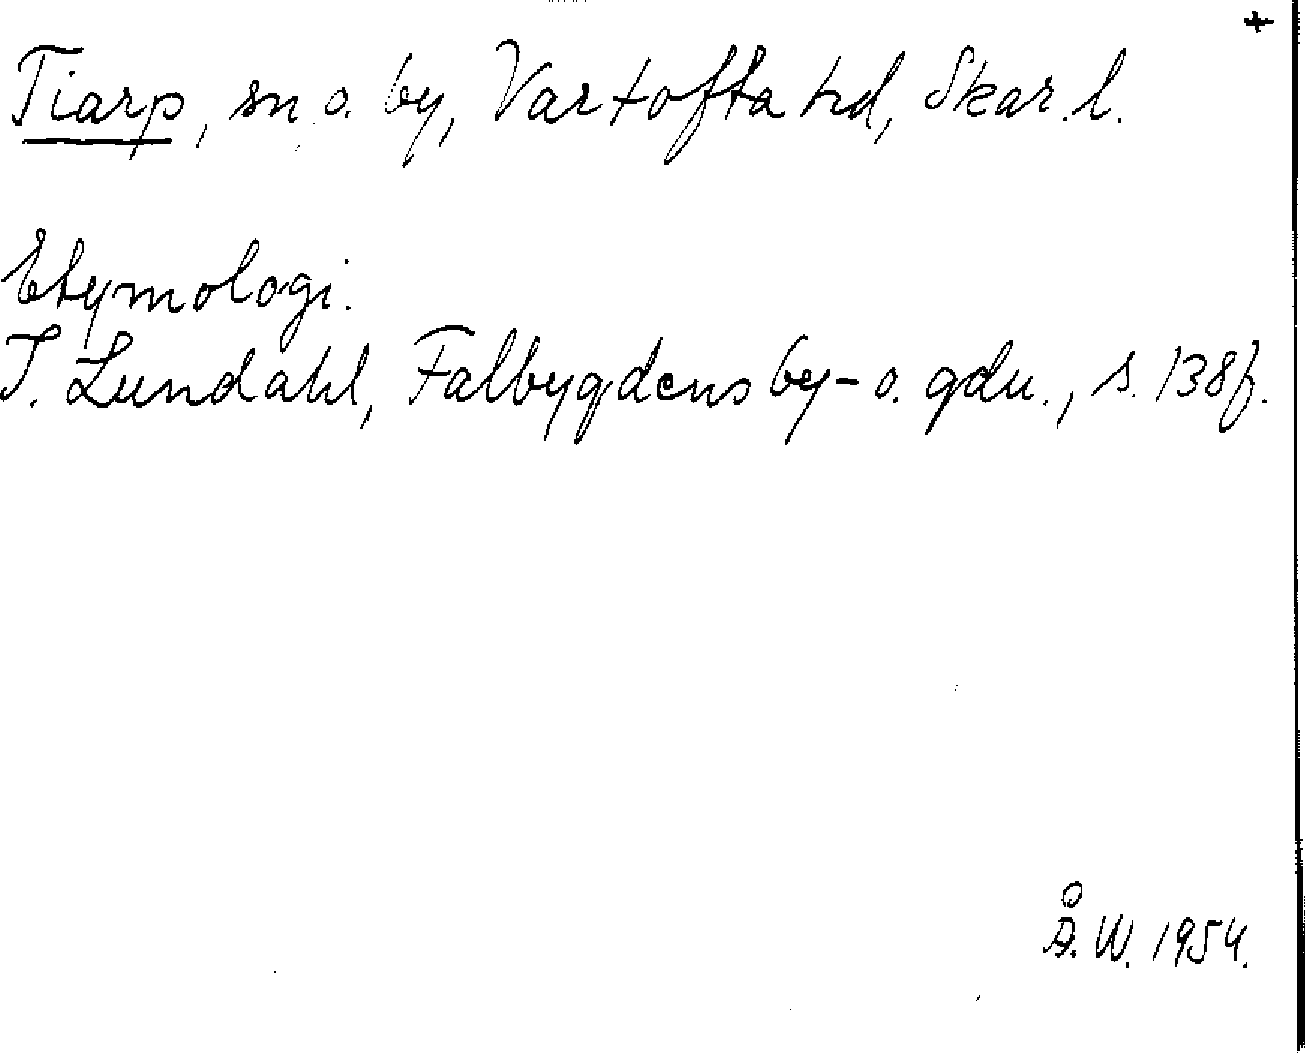 +
Tiarp, sn o. by, Vartofta hd, Skar. l.
Etymologi.
I. Lundahl, Falbygdens by- o. gdn., s. 138f.
Å. W. 1954.